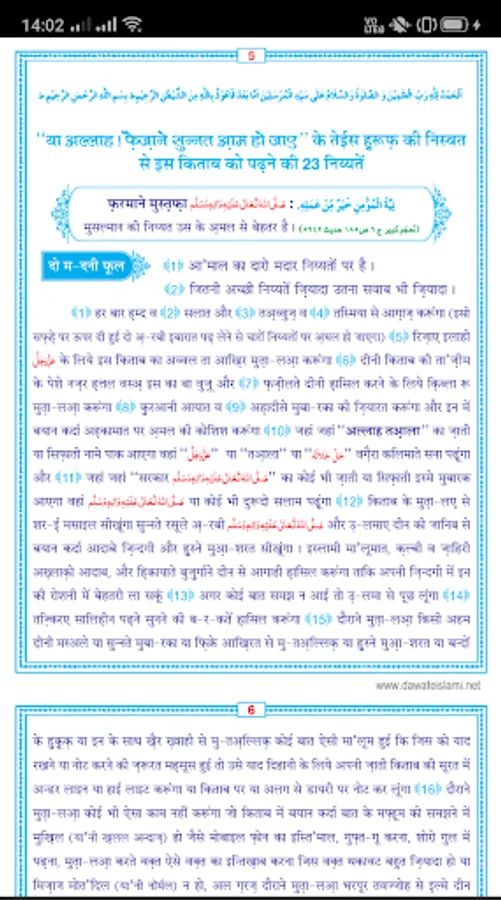 14:02
VO LTE
5
اَلْحَمْدُ لِلّٰهِ رَبِّ الْعٰلَمِيْنَ وَ الصَّلٰوةُ وَ السَّلَامُ عَلٰى سَيِّدِ الْمُرْسَلِيْنَ اَمَّا بَعْدُ فَاَعُوْذُ بِاللّٰهِ مِنَ الشَّيْطٰنِ الرَّجِيْمِ ط بِسْمِ اللّٰهِ الرَّحْمٰنِ الرَّحِيْمِ ط
"या अल्लाह ! फ़ैज़ाने सुन्नत आ़म हो जाए" के तेईस हुरूफ़ की निस्बत
से इस किताब को पढ़ने की 23 निय्यतें
फ़रमाने मुस्त़फ़ा صَلَّى اللّٰهُ تَعَالٰى عَلَيْهِ وَاٰلِهٖ وَسَلَّم : نِيَّةُ الْمُؤْمِنِ خَيْرٌ مِّنْ عَمَلِهٖ۔
मुसल्मान की निय्यत उस के अ़मल से बेहतर है। (معجم کبیر ج ٦ ص ١٨٥ حدیث ٥٩٤٢)
दो म-दनी फूल
(1) आ'माल का दारो मदार निय्यतों पर है।
(2) जितनी अच्छी निय्यतें ज़ियादा उतना सवाब भी ज़ियादा।
(1) हर बार ह़म्द व (2) सलात और (3) तअ़व्वुज़ व (4) तस्मिया से आग़ाज़ करूंगा (इसी
सफ़्ह़े पर ऊपर दी हुई दो अ़-रबी इबारात पढ़ लेने से चारों निय्यतों पर अ़मल हो जाएगा) (5) रिज़ाए इलाही
عَزَّوَجَلَّ के लिये इस किताब का अव्वल ता आख़िर मुत़ा-लआ़ करूंगा (6) दीनी किताब की ता'ज़ीम
के पेशे नज़र ह़त्तल वस्अ़ इस का बा वुज़ू और (7) फ़ज़ीलते दीनी ह़ासिल करने के लिये क़िब्ला रू
मुत़ा-लआ़ करूंगा (8) क़ुरआनी आयात व (9) अह़ादीसे मुबा-रका की ज़ियारत करूंगा और इन में
बयान कर्दा अह़कामात पर अ़मल की कोशिश करूंगा (10) जहां जहां "अल्लाह तआ़ला" का ज़ाती
या सिफ़ाती नामे पाक आएगा वहां "عَزَّوَجَلَّ" या "तआ़ला" या "جَلَّ جَلَالُهٗ" वग़ैरा कलिमाते सना पढूंगा
और (11) जहां जहां "सरकार صَلَّى اللّٰهُ تَعَالٰى عَلَيْهِ وَاٰلِهٖ وَسَلَّم" का कोई भी ज़ाती या सिफ़ाती इस्मे मुबारक
आएगा वहां صَلَّى اللّٰهُ تَعَالٰى عَلَيْهِ وَاٰلِهٖ وَسَلَّم या कोई भी दुरूदो सलाम पढूंगा (12) किताब के मुत़ा-लए से
शर-ई मसाइल सीखूंगा सुन्नते रसूले अ़-रबी صَلَّى اللّٰهُ تَعَالٰى عَلَيْهِ وَاٰلِهٖ وَسَلَّم और उ़-लमाए दीन की जानिब से
बयान कर्दा आदाबे ज़िन्दगी और हुस्ने मुआ़-शरत सीखूंगा। इस्लामी मा'लूमात, क़ल्बी व ज़ाहिरी
अख़्लाक़ो आदाब, और ह़िकायाते बुज़ुर्गाने दीन से आगाही ह़ासिल करूंगा ताकि अपनी ज़िन्दगी में इन
की रोशनी में बेहतरी ला सकूं (13) अगर कोई बात समझ न आई तो उ़-लमा से पूछ लूंगा (14)
तज़्किरए सालिह़ीन पढ़ने सुनने की ब-र-कतें ह़ासिल करूंगा (15) दौराने मुत़ा-लआ़ किसी अहम
दीनी मस्अले या सुन्नते मुबा-रका या फ़िक्रे आख़िरत से मु-तअ़ल्लिक़ या हुस्ने मुआ़-शरत या बन्दों
www.dawateislami.net
6
के ह़ुक़ूक़ या इन के साथ ख़ैर ख़्वाही से मु-तअ़ल्लिक़ कोई बात ऐसी मा'लूम हुई कि जिस को याद
रखने या नोट करने की ज़रूरत मह़सूस हुई तो उसे याद दिहानी के लिये अपनी ज़ाती किताब की सूरत में
अन्डर लाइन या हाई लाइट करूंगा या किताब पर या अलग से डायरी पर नोट कर लूंगा (16) दौराने
मुत़ा-लआ़ कोई भी ऐसा काम नहीं करूंगा जो किताब में बयान कर्दा बात के मफ़्हूम को समझने में
मुख़िल (या'नी ख़लल अन्दाज़) हो जैसे मोबाइल फ़ोन का इस्ति'माल, गुफ़्त-गू करना, शोरो गुल में
पढ़ना, मुत़ा-लआ़ करते वक़्त ऐसे वक़्त का इन्तिख़ाब करना जिस वक़्त थकावट बहुत ज़ियादा हो या
मिज़ाज मोत'दिल (या'नी नॉर्मल) न हो, अल ग़रज़ दौराने मुत़ा-लआ़ भरपूर तवज्जोह से इल्मे दीन